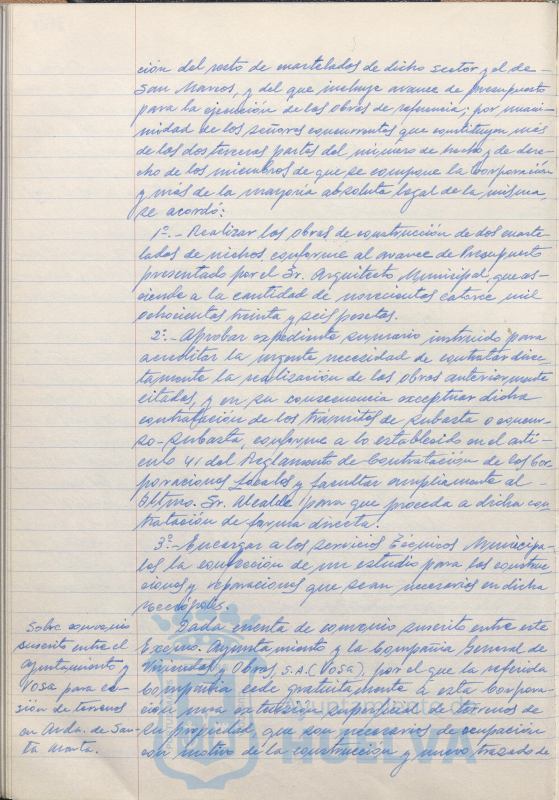 ción del resto de martelados de dicho sector y el de
San Marcos, y del que incluye avance de presupuesto
para la ejecución de las obras de referencia; por unani-
midad de los señores concurrentes que constituyen más
de las dos terceras partes del número de hecho y de dere-
cho de los miembros de que se compone la Corporación
y más de la mayoría absoluta legal de la misma,
se acordó:
1º.- Realizar las obras de construcción de dos marte-
lados de nichos, conforme al avance de Presupuesto
presentado por el Sr. Arquitecto Municipal, que as-
ciende a la cantidad de novecientas catorce mil
ochocientas treinta y seis pesetas.
2º.- Aprobar expediente sumario instruido para
acreditar la urgente necesidad de contratar direc-
tamente la realización de las obras anteriormente
citadas, y en su consecuencia exceptuar dicha
contratación de los trámites de subasta o concur-
so-subasta, conforme a lo establecido en el artí-
culo 41 del Reglamento de Contratación de las Cor-
poraciones Locales y facultar ampliamente al
Iltmo. Sr. Alcalde para que proceda a dicha con-
tratación de forma directa.
3º.- Encargar a los Servicios Técnicos Municipa-
les la confección de un estudio para las construc-
ciones y reparaciones que sean necesarias en dicha
Necrópolis.
Sobre convenio
suscrito entre el
Ayuntamiento y
VOSA para ce-
sión de terrenos
en Avda. de San-
ta Marta.
Dada cuenta de convenio suscrito entre este
Excmo. Ayuntamiento y la Compañía General de
Viviendas y Obras, S.A. (VOSA), por el que la referida
Compañía cede gratuitamente a esta Corpora-
ción una extensión superficial de terrenos de
su propiedad, que son necesarios de ocupación
con motivo de la construcción y nuevo trazado de
Ayuntamiento de
HUELVA